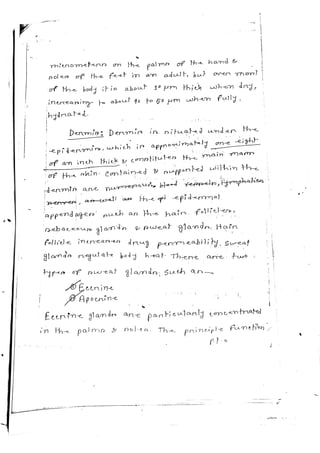 micrometers on the palms of the hand &
soles of the feet in an adult, but over most
of the body it is about 10 μm thick when dry,
increasing to about 40 to 50 μm when fully.
hydrated.
Dermis: Dermis is situated under the
epidermis. which is approximately one-eight
of an inch thick & constitutes the main mass
of the skin. Contained & supported within the
dermis are numerous blood vessels, lymphatics
nerves, as well as the epidermal
appendages such as the hair follicles,
sebaceous glands & sweat glands. Hair
follicle increases drug permeability, Sweat
glands regulate body heat. There are two
types of sweat glands, such as—
Eccrine
Apocrine
Eccrine glands are particularly concentrated
in the palms & soles. The principle function